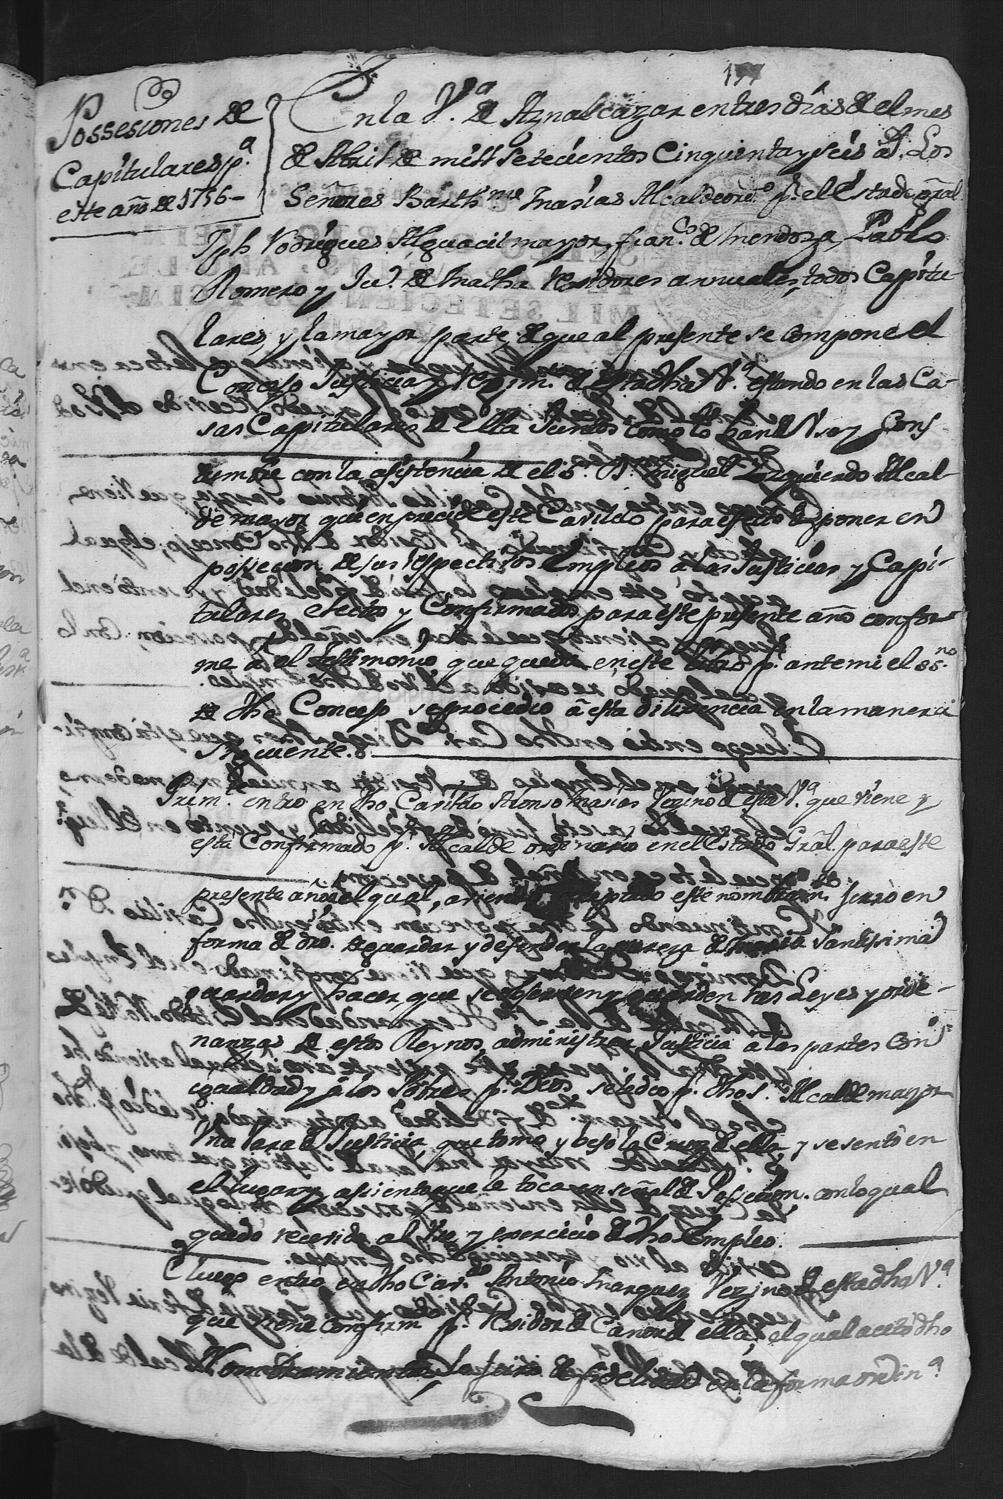 177
Possesiones de
Capitulares p.ª
este año de 1756-
En la V.ª de Aznalcazar en tres dias de el mes
de Abril de mill setecientos cinquenta y seis a.s Los
Señores Barth.me Frasías Alcalde ord.º p.r el Estado gñal
Jph Rodrigues Alguacil mayor, fran.co de mendoza, Pablo
Romero y Ju.º de Rexidores annuales, todos Capitu-
lares, y la mayor parte, de que al presente se compone el
Concejo Justicia y Regim.to de esta dha V.ª estando en las Ca-
sas Capitulares de ella Juntos como lo han de Vso y Cos-
tumbre con la asistencia de el S.r D.n Miguel Izquierdo Alcal-
de mayor que en precide este Cavildo para efecto de poner en
posecion de sus respectivos Empleos a las Justicias y Capi-
tulares electos y Confirmados para este presente año confor-
me á el testimonio que queda en este Libro p.r ante mi el ess.no
de dho Concejo se procedio â esta diligencia en la manera
siguiente.
Prim.te entro en dho Cavildo Alonso frasías Vezino de esta V.ª que viene y
está Confirmado p.r Alcalde ordenario en el estado Grãl. para este
presente año, el qual, aviendo aceptado este nombram.to juró en
forma de dro. de guardar y defender la pureza de Maria Santissima
guardar y hacer que se observen y guarden las Leyes y orde-
nanzas de estos Reynos, administrar Justicia a las partes con
igualdad y a los Pobres p.r Dios, se le dio p.r dho S.r Alcalde mayor
Vna Vara de Justicia, que tomo y beso la Cruz de ella, y se sentó en
el lugar y asiento que le toca en señal de Posesion. con lo qual
quedó recevido al Vso y exercicio de dho Empleo.
E luego entro en dho Cav.do Antonio Marquez Vezino de esta dha V.ª
que viene Confirm.do p.r Rexidor de Canon de ella, el qual acetó dho
Nombramiento, de fidelidad en la forma ordin.ª